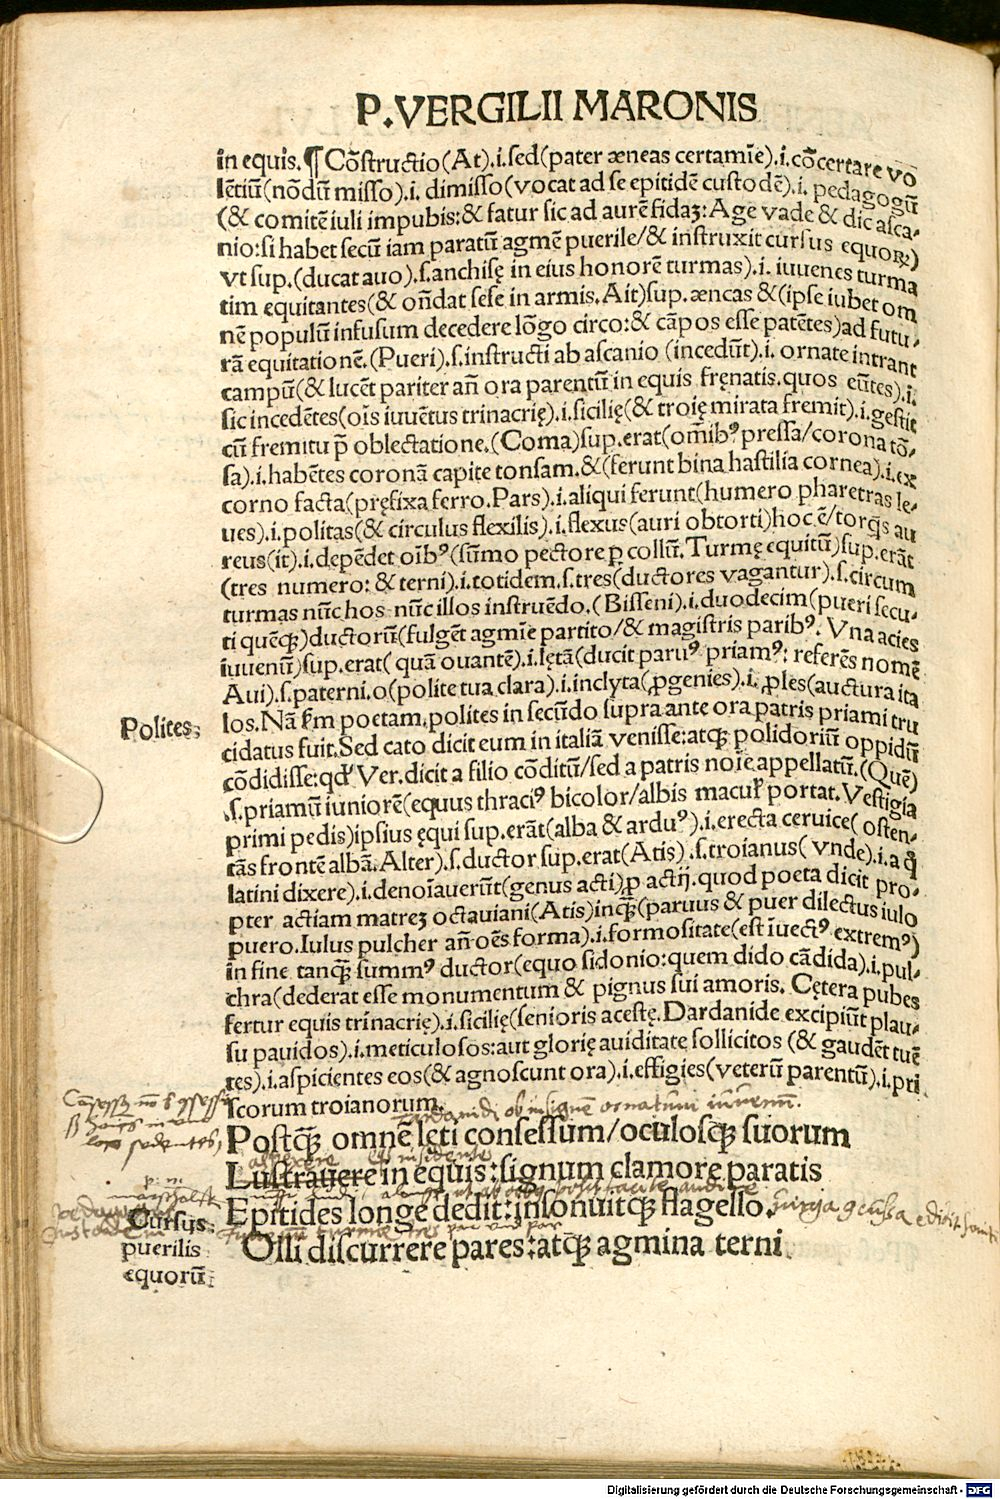 P.VERGILII MARONIS
in equis.¶Cōstructio(At).i.sed(pater æneas certamīe).i.cōcertare vo
lētiū(nōdū misso).i. dimisso(vocat ad se epitidē custodē).i. pedagogū
(& comitē iuli impubis:& fatur sic ad aurē fidaʒ: Age vade & dic aſca⸗
nio:si habet secū iam paratū agmē puerile/& instruxit cursus equoꝝ)
vt sup.(ducat auo).ſ.anchisę in eius honorē turmas).i. iuuenes turma
tim equitantes(& oñdat sese in armis.Ait)sup.æneas &(ipse iubet om
nē populū infusum decedere lōgo circo:& cāpos esse patētes)ad futu⸗
rā equitationē.(Pueri).ſ.instructi ab ascanio (incedūt).i. ornate intrant
campū(& lucēt pariter añ ora parentū in equis fręnatis.quos eūtes).i.
sic incedētes(oīs iuuētus trinacrię).i.sicilię(& troię mirata fremit).i.gestit
cū fremitu p̄ oblectatione.(Coma)sup.erat(om̄ibꝰ pressa/corona tō⸗
sa).i.habētes coronā capite tonsam.&(ferunt bina hastilia cornea).i.ex
corno facta(pręfixa ferro.Pars).i.aliqui ferunt(humero pharetras le⸗
ues).i.politas(& circulus flexilis).i.flexus(auri obtorti)hoc ē/torq̄s au
reus(it).i.depēdet oībꝰ(sūmo pectore ꝑ collū.Turmę equitū)sup.erāt
(tres numero: & terni).i.totidem.ſ.tres(ductores vagantur).ſ.circum
turmas nūc hos nūc illos instruēdo.(Bisseni).i.duodecim(pueri secu⸗
ti quēqꝫ)ductorū(fulgēt agmīe partito/& magistris paribꝰ. Vna acies
iuuenū)sup.erat( quā ouantē).i.lętā(ducit paruꝰ priamꝰ: referēs nomē
Aui).ſ.paterni.o(polite tua clara).i.inclyta(ꝓgenies).i.ꝓles(auctura ita
los.Nā ẜm poetam.polites in secūdo supra ante ora patris priami tru
cidatus fuit.Sed cato dicit eum in italiā venisse:atqꝫ polidoriū oppidū
cōdidisse:qđ Ver.dicit a filio cōditū/sed a patris noīe appellatū.(Quē)
.ſ.priamū iuniorē(equus thraciꝰ bicolor/albis macuł portat.Vestigia
primi pedis)ipsius ęqui sup.erāt(alba & arduꝰ).i.erecta ceruice( osten⸗
tās frontē albā.Alter).ſ.ductor sup.erat(Atis).ſ.troianus( vnde).i.a q̊
latini dixere).i.denoīauerūt(genus acti)ꝓ actij.quod poeta dicit pro⸗
pter actiam matreʒ octauiani(Atis)inqꝫ(paruus & puer dilectus iulo
puero.Iulus pulcher añ oēs forma).i.formositate(est īuectꝰ extremꝰ)
in fine tanqꝫ summꝰ ductor(equo sidonio:quem dido cādida).i.pul⸗
chra(dederat esse monumentum & pignus sui amoris. Cętera pubes
fertur equis trinacrię).i.sicilię(senioris acestę.Dardanide excipiūt plau⸗
su pauidos).i.meticulosos:aut glorię auiditate sollicitos (& gaudēt tuē
tes).i.aspicientes eos(& agnoscunt ora).i.effigies(veterū parentū).i.pri
scorum troianorum.
Polites:
dardanidi ob insignē ornatum iuvenum.
Postqꝫ omnē lęti consessum/oculosqꝫ suorum
Lustrauere in equis:signum clamore paratis
Epitides longe dedit:insonuitqꝫ flagello.
Olli discurrere pares:atqꝫ agmina terni.
Cursus:
puerilis
equorū:
Digitalisierung gefördert durch die Deutsche Forschungsgemeinschaft - DFG